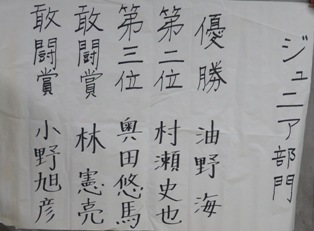 ジュニア部門
優勝 油野海
第二位 村瀬史也
第三位 奥田悠馬
敢闘賞 林憲亮
敢闘賞 小野旭彦